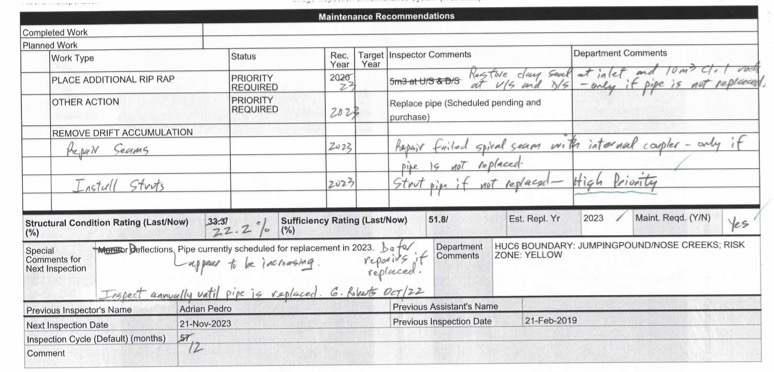 Maintenance Recommendations
Completed Work
Planned Work
Work Type Status Rec. Year Target Year Inspector Comments Department Comments
PLACE ADDITIONAL RIP RAP PRIORITY REQUIRED 2020 23 5m3 at U/S & D/S Restore clay seal at inlet and 10m³ Cl.1 rock
at U/S and D/S - only if pipe is not replaced.
OTHER ACTION PRIORITY REQUIRED 2023 Replace pipe (Scheduled pending and
purchase)
REMOVE DRIFT ACCUMULATION
Repair Seams 2023 Repair failed spiral seam with internal coupler - only if
pipe is not replaced.
Install Struts 2023 Strut pipe if not replaced - High Priority
Structural Condition Rating (Last/Now) (%) 33.3/ 22.2% Sufficiency Rating (Last/Now) (%) 51.8/ Est. Repl. Yr 2023 Maint. Reqd. (Y/N) Yes
Special Comments for Next Inspection Monitor Deflections, Pipe currently scheduled for replacement in 2023. Defer
appear to be increasing. repairs if
replaced.
Inspect annually until pipe is replaced. G. Roberts OCT/22
Department Comments HUC6 BOUNDARY: JUMPINGPOUND/NOSE CREEKS; RISK
ZONE: YELLOW
Previous Inspector's Name Adrian Pedro Previous Assistant's Name
Next Inspection Date 21-Nov-2023 Previous Inspection Date 21-Feb-2019
Inspection Cycle (Default) (months) 57
12
Comment